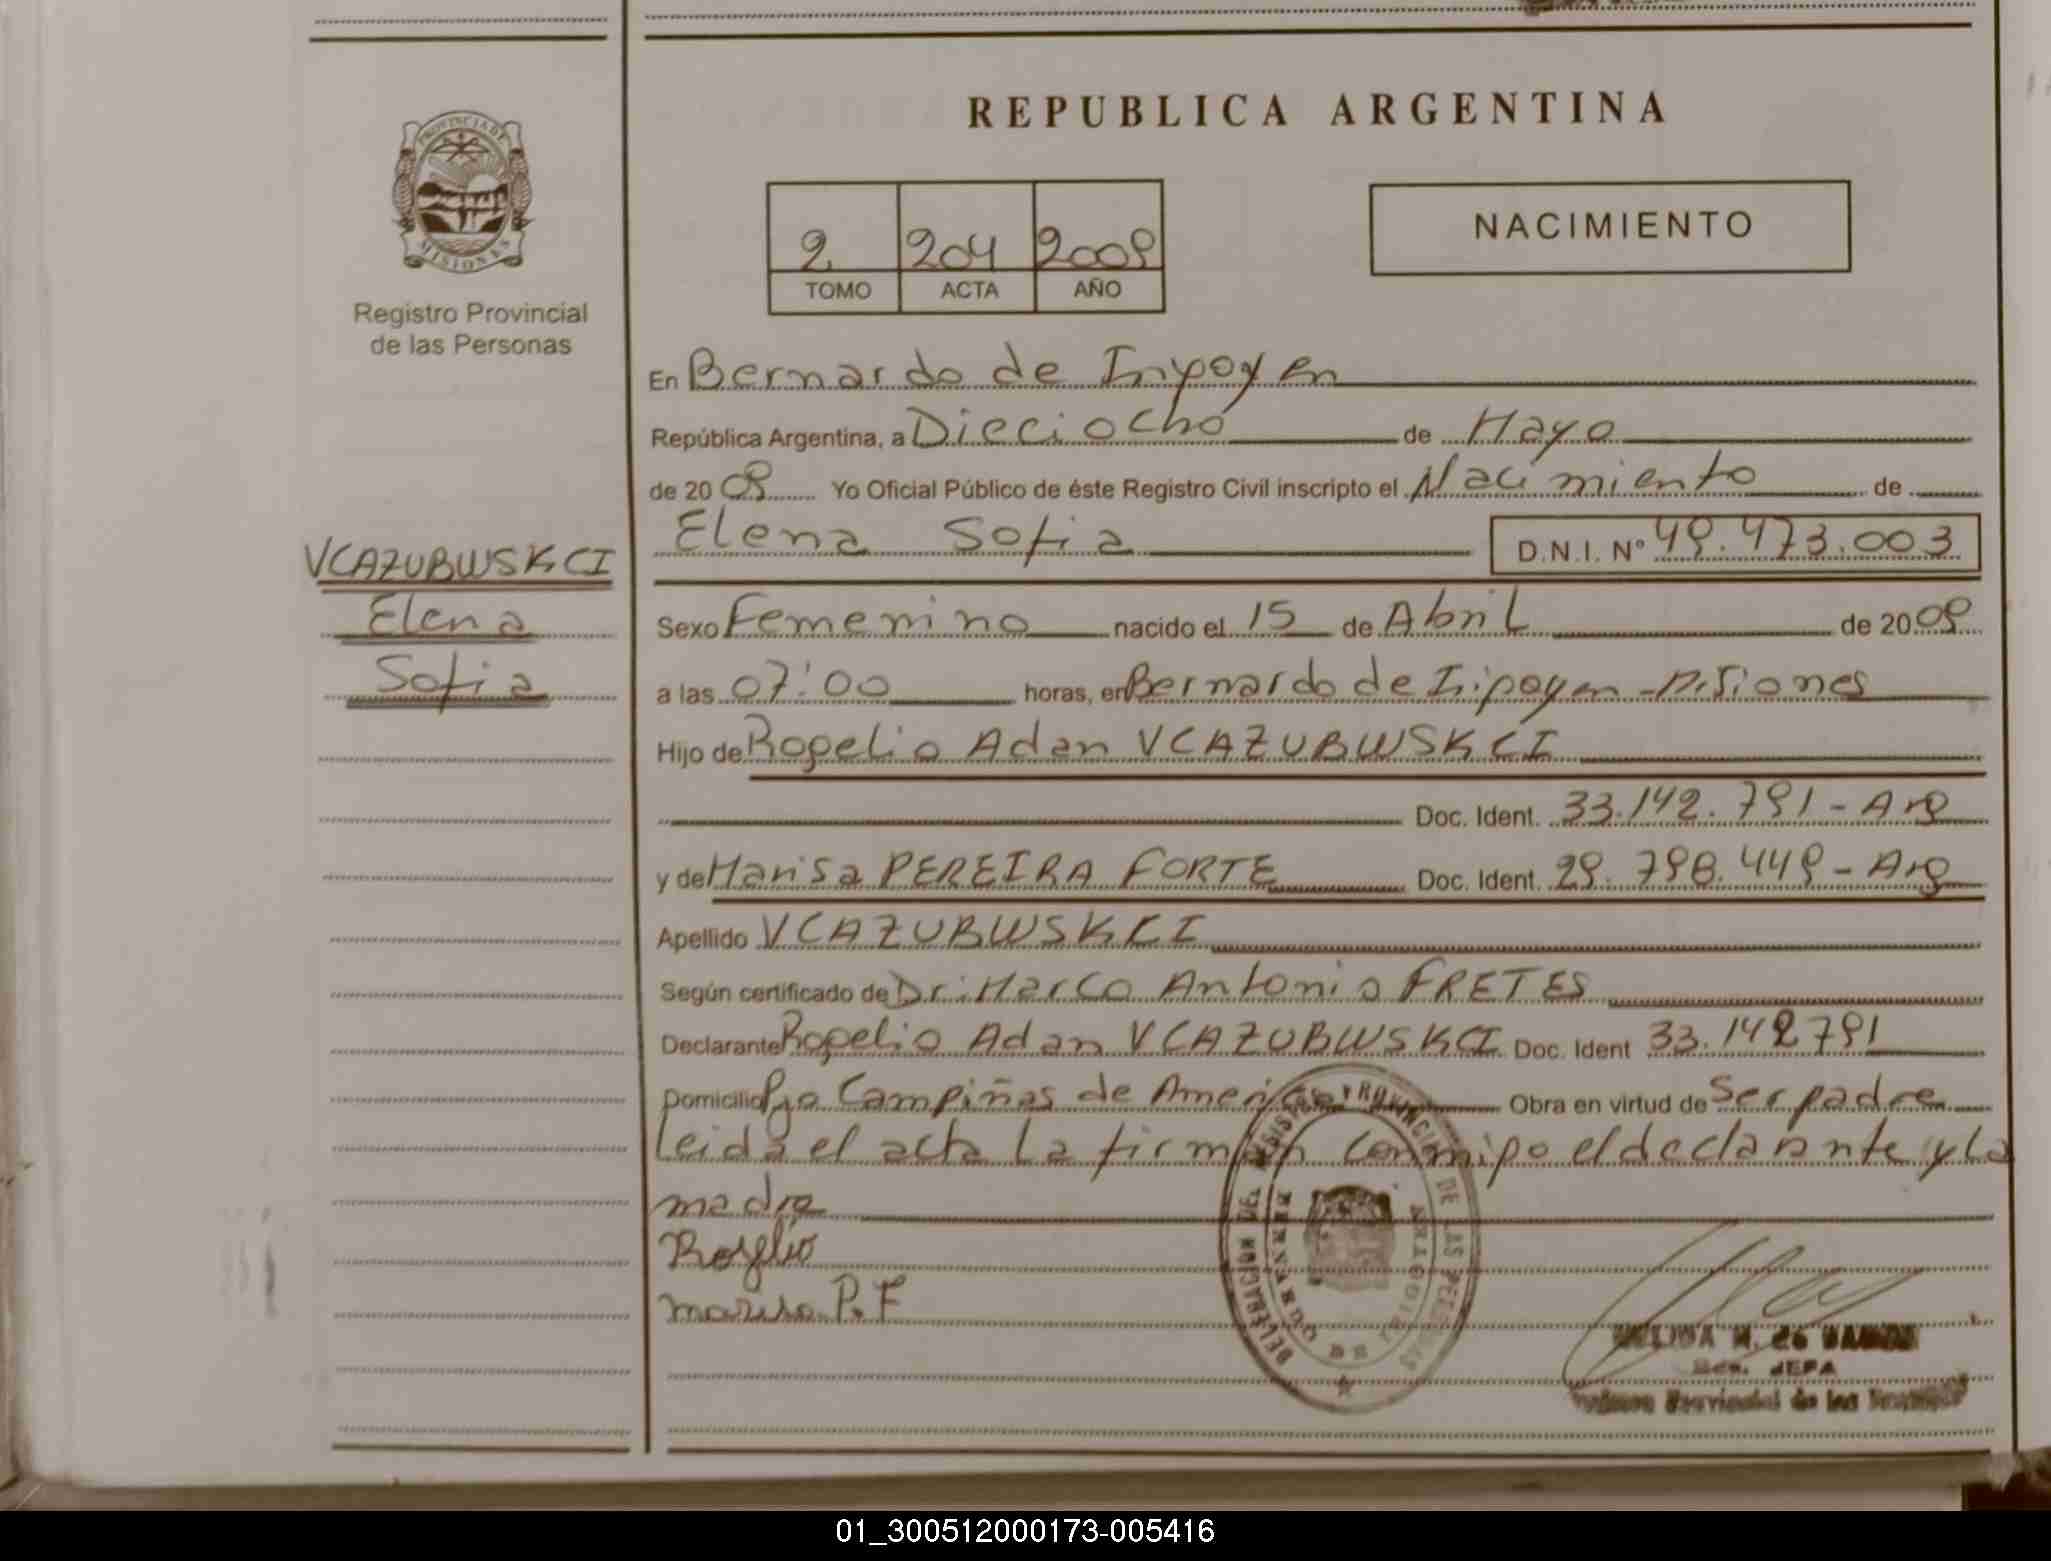 REPUBLICA ARGENTINA
PROVINCIA DE
MISIONES
Registro Provincial
de las Personas
2 204 2009
TOMO ACTA AÑO
NACIMIENTO
En Bernardo de Irigoyen
República Argentina, a Dieciocho de Mayo
de 20 09 Yo Oficial Público de éste Registro Civil inscripto el Nacimiento de
Elena Sofia D.N.I. Nº 49.473.003
VCAZUBWSKCI
Elena
Sofia
Sexo Femenino nacido el 15 de Abril de 20 09
a las 07:00 horas, en Bernardo de Irigoyen - Misiones
Hijo de Rogelio Adan VCAZUBWSKCI
Doc. Ident. 33.142.791 - Arg
y de Marisa PEREIRA FORTE Doc. Ident. 29.798.449 - Arg
Apellido VCAZUBWSKCI
Según certificado de Dr: Marco Antonio FRETES
Declarante Rogelio Adan VCAZUBWSKCI Doc. Ident 33.142791
Domicilio Pje Campiñas de America Obra en virtud de Ser padre
leida el acta La firman conmigo el declarante y La
madre
Rogelio
marisa P.F
REGISTRO PROVINCIAL DE LAS PERSONAS
DELEGACION DE
BERNARDO DE IRIGOYEN
M. de
JEFA
Provincial de las
01_300512000173-005416